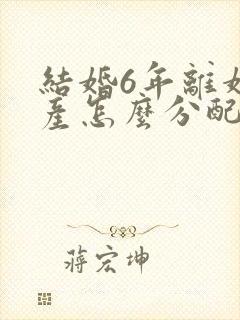 結婚6年離女
產怎麼分配
蔣宏坤